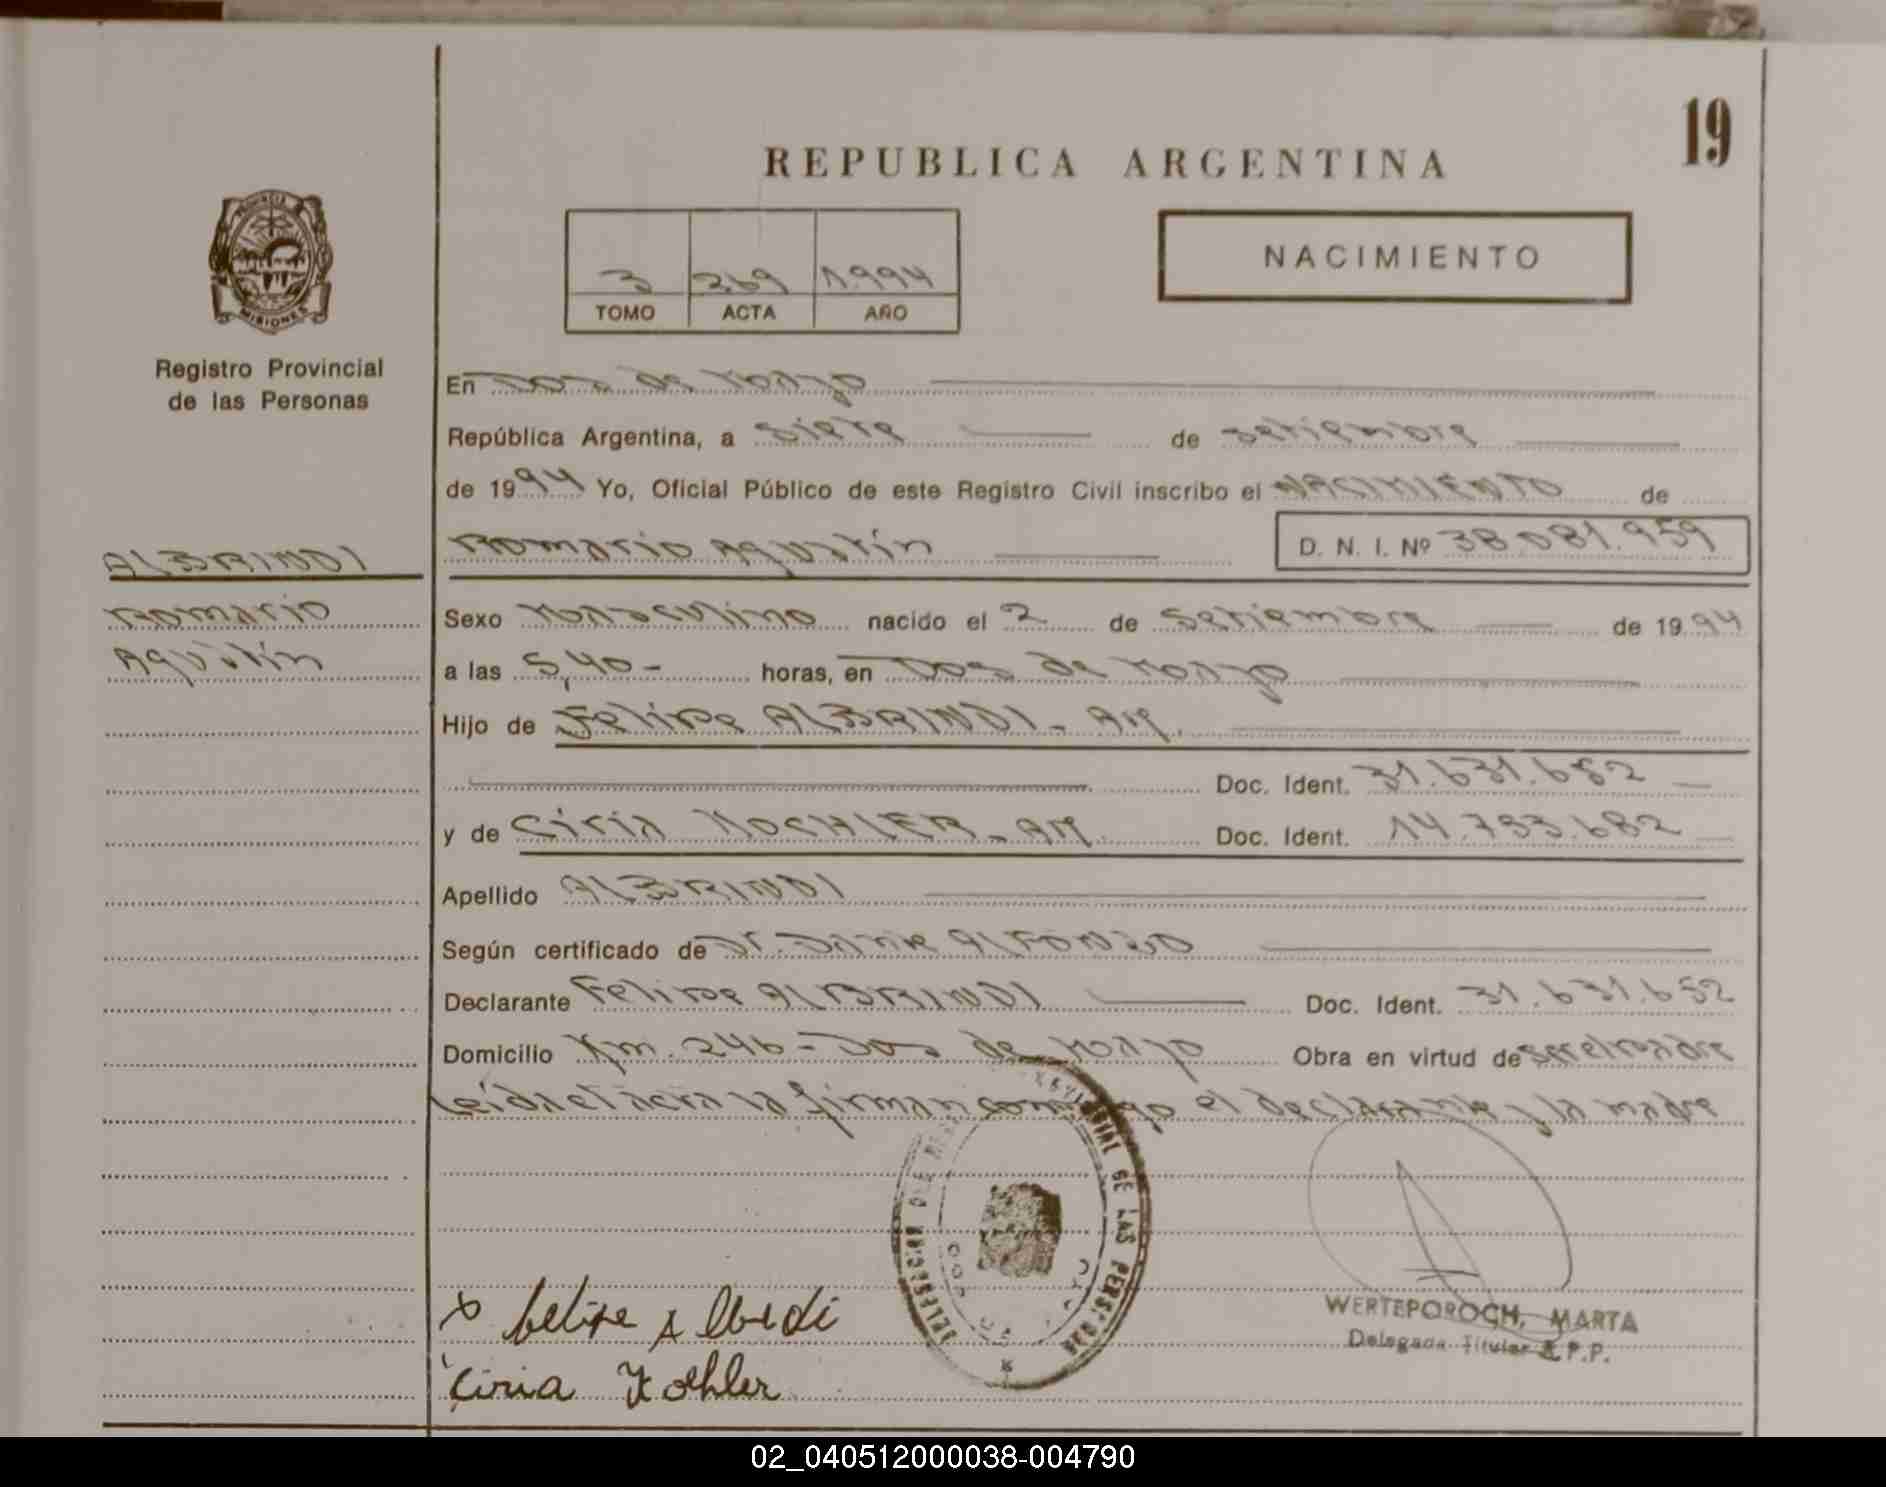 19
REPUBLICA ARGENTINA
3 269 1.994
TOMO ACTA AÑO
NACIMIENTO
PROVINCIA
MISIONES
Registro Provincial
de las Personas
En Dos de Mayo
República Argentina, a siete de setiembre
de 1994 Yo, Oficial Público de este Registro Civil inscribo el NACIMIENTO de
ALBRINDI
Romario Agustín D. N. I. Nº 38.081.959
Romario
Agustín
Sexo Masculino nacido el 2 de setiembre de 1994
a las 5,40- horas, en Dos de Mayo
Hijo de Felipe ALBRINDI - Ar.
Doc. Ident. 31.631.652
y de Ciria KOEHLER - Ar. Doc. Ident. 14.733.682
Apellido ALBRINDI
Según certificado de Dr. Dante ALFONZO
Declarante Felipe ALBRINDI Doc. Ident. 31.631.652
Domicilio Km. 246 - Dos de Mayo Obra en virtud de ser el padre
Leída el acta la firman conmigo el declarante y la madre
DE LAS PERSONAS
Felipe
Ciria Koehler
WERTEPOROCH, MARTA
Delegada Titular R.P.P.
02_040512000038-004790